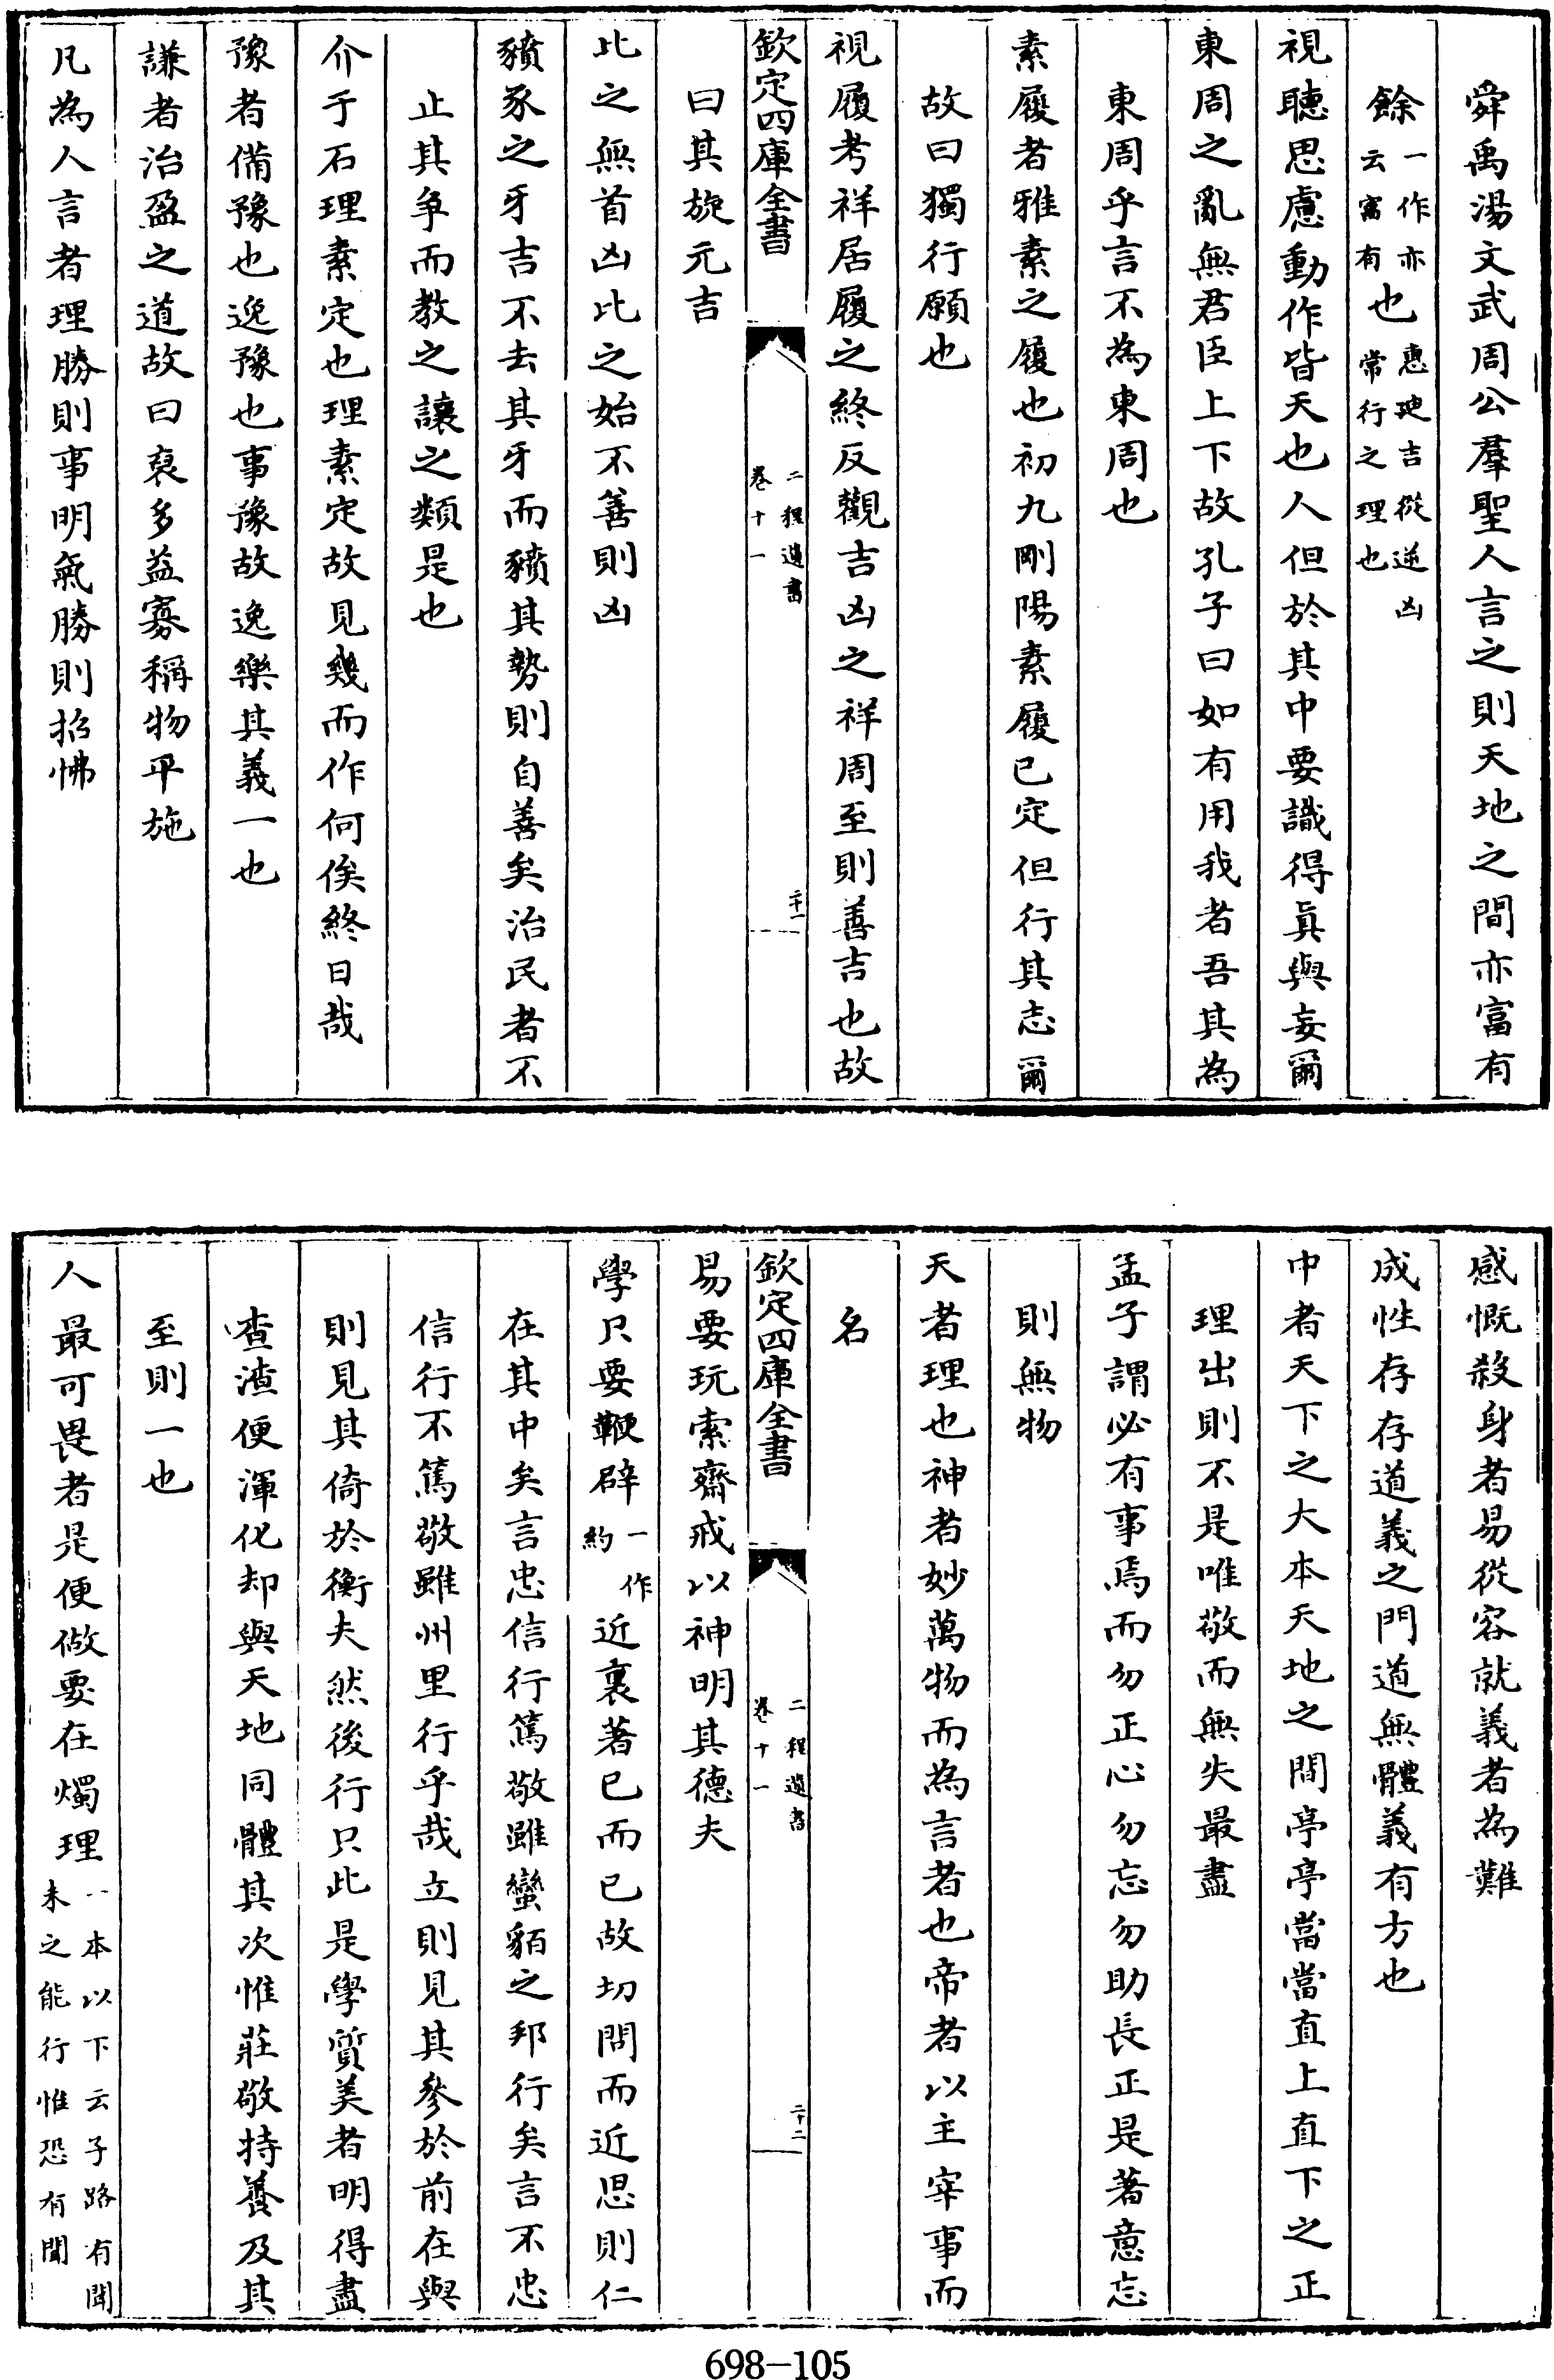 舜禹湯文武周公羣聖人言之則天地之間亦富有
餘一作亦云富有也惠廸吉從逆凶常行之理也
視聽思慮動作皆天也人但於其中要識得真與妄爾
東周之亂無君臣上下故孔子曰如有用我者吾其為
東周乎言不為東周也
素履者雅素之履也初九剛陽素履已定但行其志爾
故曰獨行願也
視履考祥居履之終反觀吉凶之祥周至則善吉也故
欽定四庫全書
二程遺書
卷十一
二十一
曰其旋元吉
比之無首凶比之始不善則凶
豶豕之牙吉不去其牙而豶其勢則自善矣治民者不
止其爭而教之讓之類是也
介于石理素定也理素定故見幾而作何俟終日哉
豫者備豫也逸豫也事豫故逸樂其義一也
謙者治盈之道故曰裒多益寡稱物平施
凡為人言者理勝則事明氣勝則招怫
感慨殺身者易從容就義者為難
成性存存道義之門道無體義有方也
中者天下之大本天地之間亭亭當當直上直下之正
理出則不是唯敬而無失最盡
孟子謂必有事焉而勿正心勿忘勿助長正是著意忘
則無物
天者理也神者妙萬物而為言者也帝者以主宰事而
名
欽定四庫全書
二程遺書
卷十一
二十二
易要玩索齋戒以神明其德夫
學只要鞭辟一作約近裏著已而已故切問而近思則仁
在其中矣言忠信行篤敬雖蠻貊之邦行矣言不忠
信行不篤敬雖州里行乎哉立則見其參於前在與
則見其倚於衡夫然後行只此是學質美者明得盡
查渣便渾化却與天地同體其次惟莊敬持養及其
至則一也
人最可畏者是便做要在燭理一本以下云子路有聞未之能行惟恐有聞
698-105